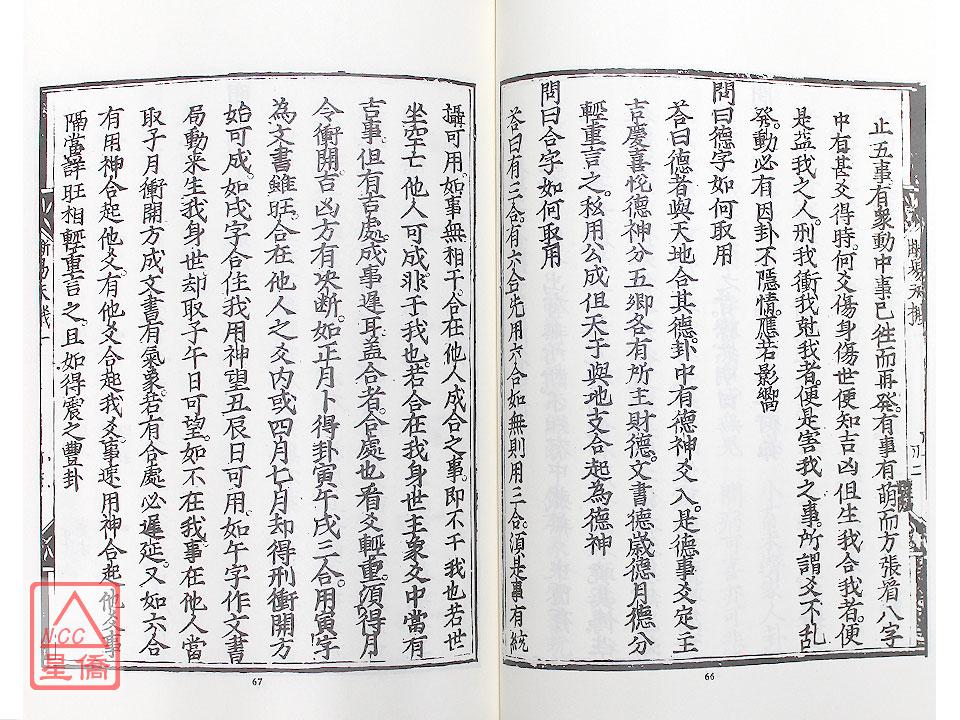 止五事有衆動中事已徃而再發有事有萌而方張看八字
中有甚爻得時何爻傷身傷世便知吉凶但生我合我者便
是益我之人刑我衝我尅我者便是害我之事所謂爻不乱
發動必有因卦不隱情應若影響
問曰德字如何取用
荅曰德者與天地合其德卦中有德神爻入是德事爻定主
吉慶喜悅德神分五鄉各有所主財德文書德歲德月德分
輕重言之私用公成但天干與地支合起為德神
問曰合字如何取用
荅曰有三合有六合先用六合如無則用三合須是事有統
66
攝可用如事無相干合在他人成合之事即不干我也若世
坐空亡他人可成非干我也若合在我身世主象爻中當有
吉事但有吉處成事遲耳盖合者合處也看爻輕重須得月
令衝開吉凶方有决断如正月卜得卦寅午戌三合用寅字
為文書雖旺合在他人之爻内或四月七月却得刑衝開方
始可成如戌字合住我用神望丑辰日可用如午字作文書
局動来生我身世却取子午日可望如不在我事在他人當
取子月衝開方成文書有氣象若有合處必遲延又如六合
有用神合起他爻有他爻合起我爻事速用神合起他爻事
隔當詳旺相輕重言之且如得震之豐卦
67
N.C.C.
星僑